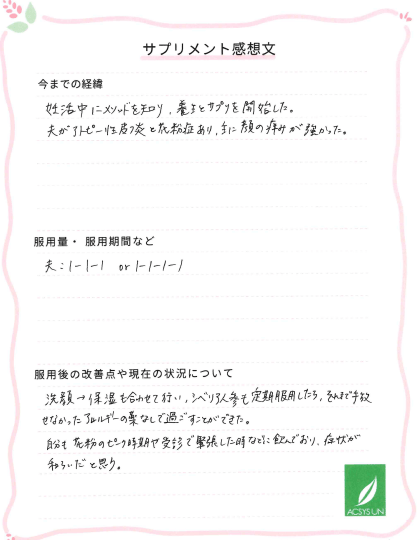 サプリメント感想文
今までの経緯
妊活中にメソッドを知り、養生とサプリを開始した。
夫がアトピー性皮フ炎と花粉症あり、主に顔の痒みが強かった。
服用量・服用期間など
夫:1-1-1 or 1-1-1-1
服用後の改善点や現在の状況について
洗顔→保湿も合わせて行い、シベリア人参も定期服用したら、それまで手放
せなかったアレルギーの薬なしで過ごすことができた。
自分も花粉のピーク時期や受診で緊張した時などに飲んでおり、症状が
和らいだと思う。
ACSYSUN